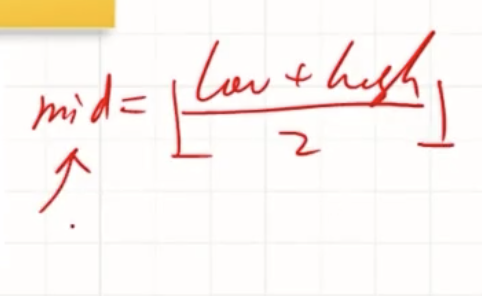 mid = ⌊(low + high)/2⌋